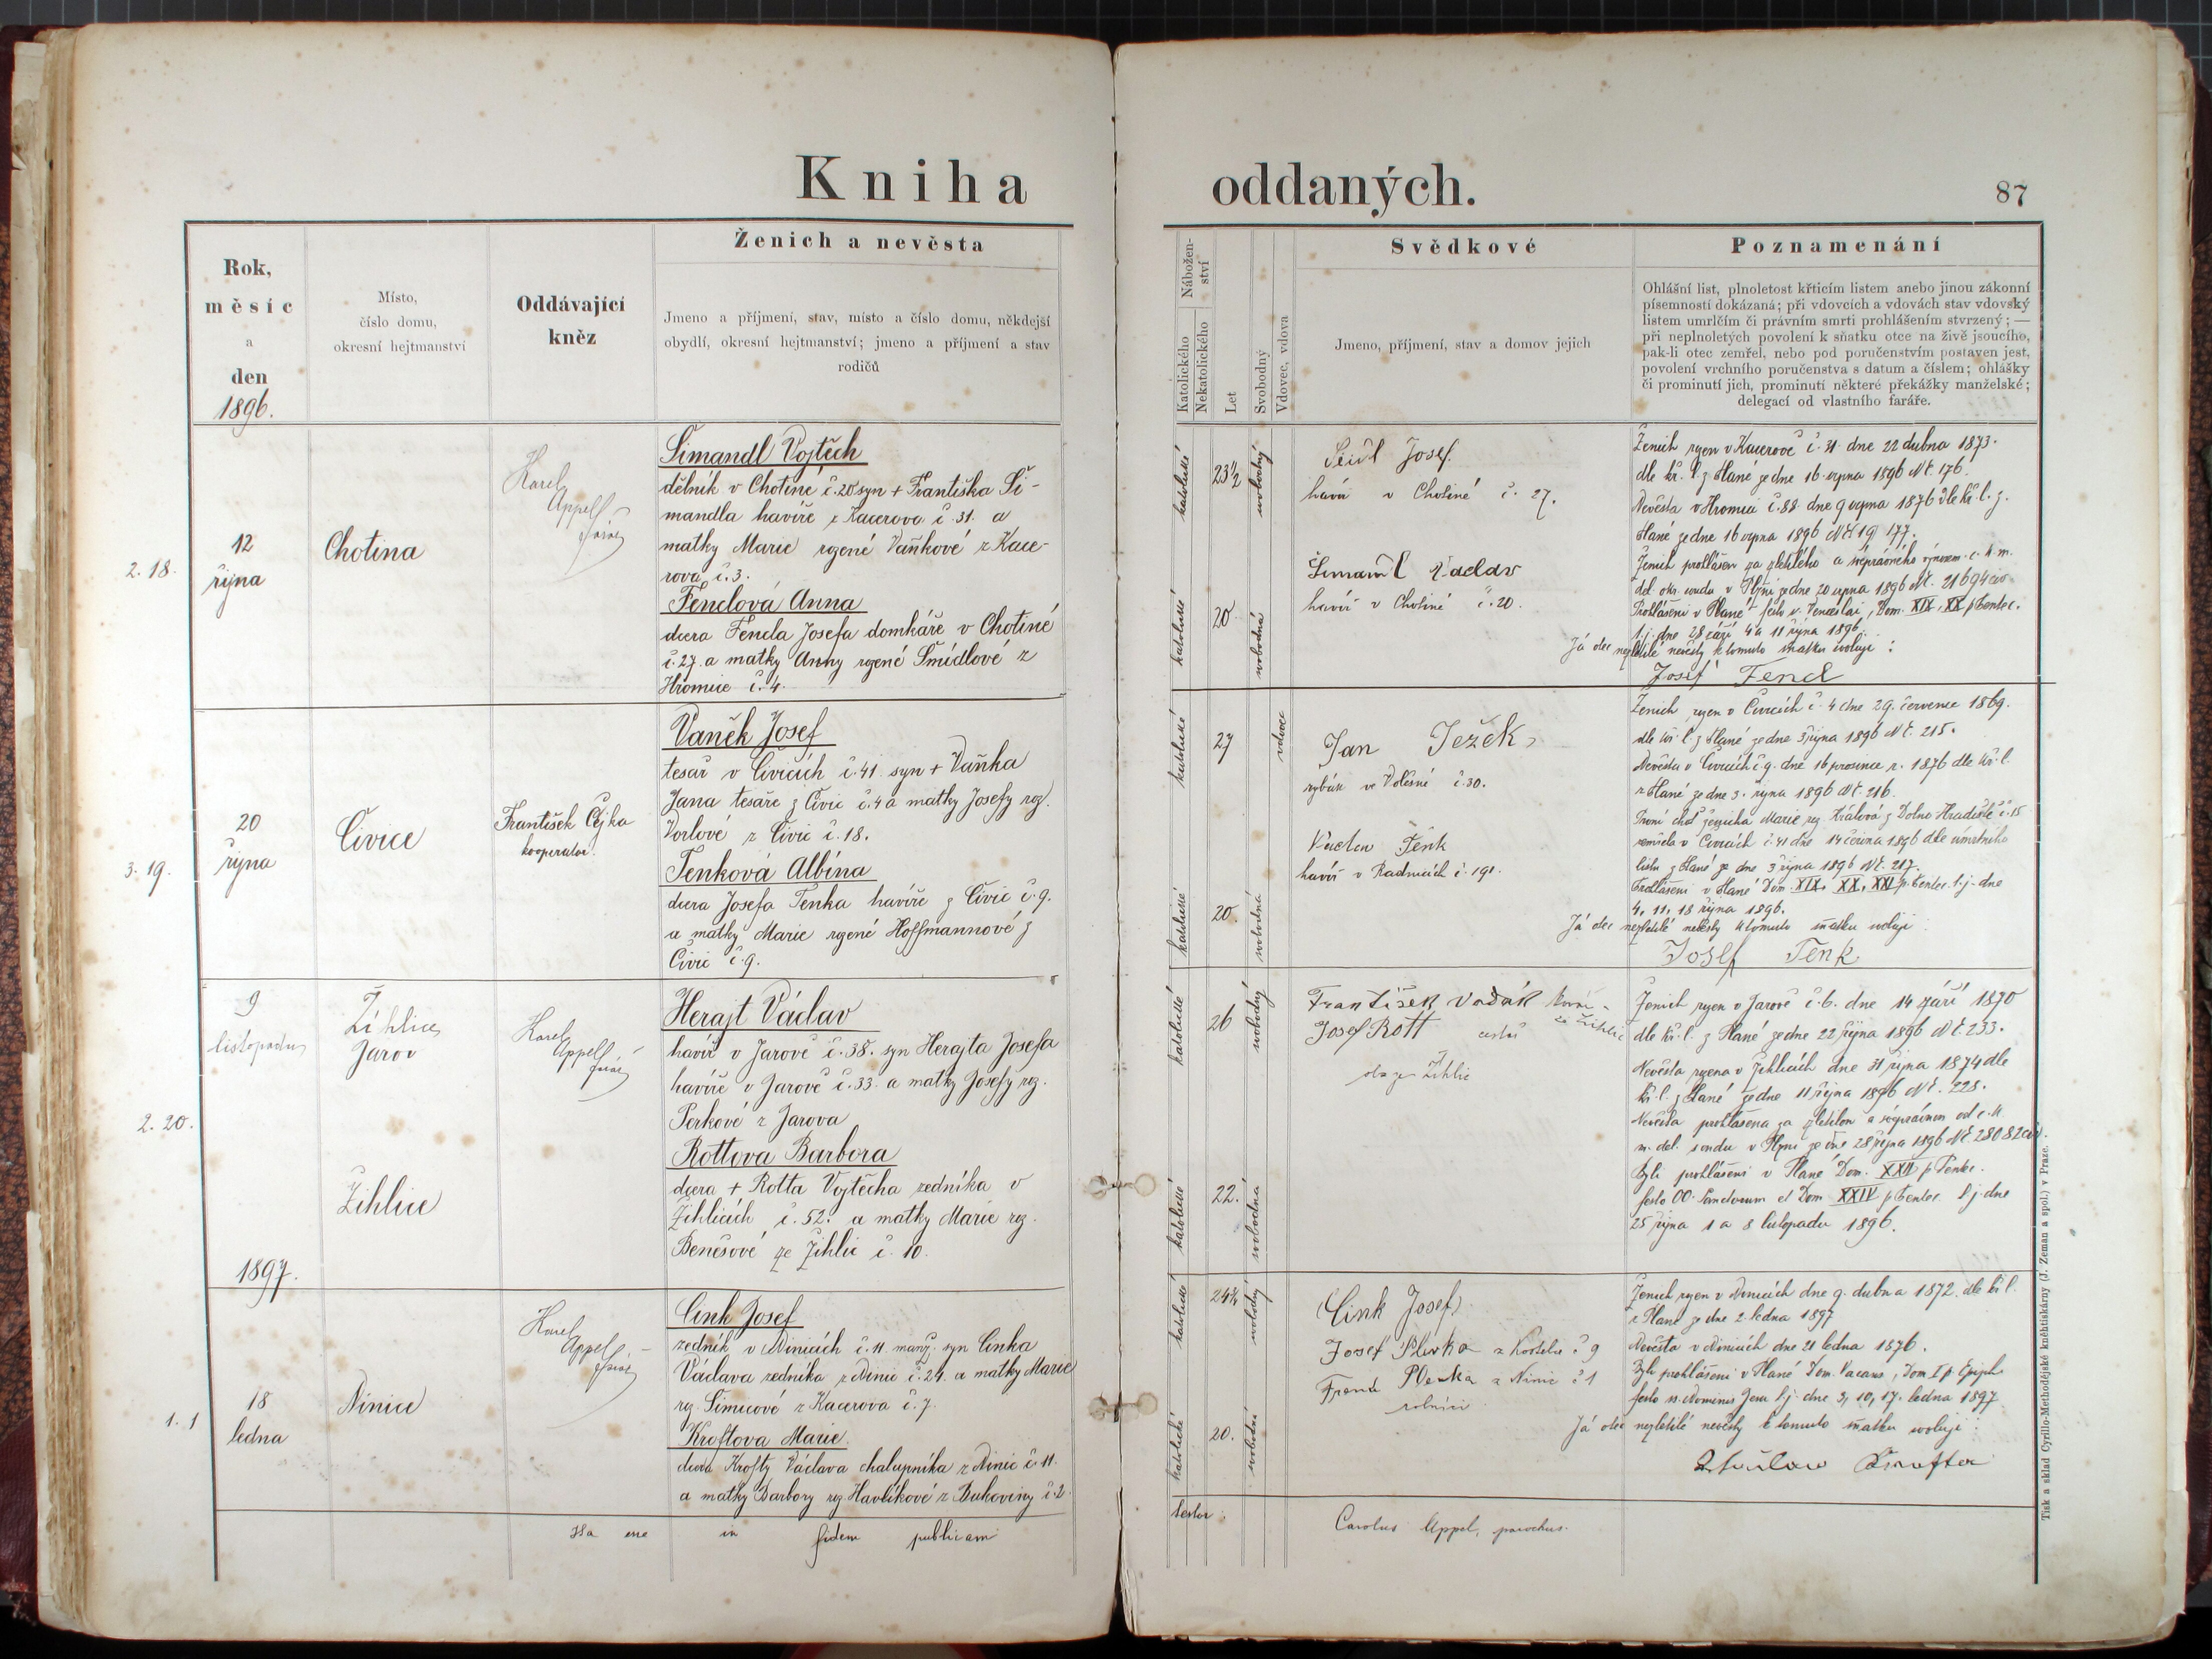 Kniha oddaných.
87
Rok,
měsíc
a
den
1896.
Místo,
číslo domu,
okresní hejtmanství
Oddávající
kněz
Ženich a nevěsta
Jmeno a příjmení, stav, místo a číslo domu, někdejší
obydlí, okresní hejtmanství; jmeno a příjmení a stav
rodičů
Nábožen-
ství
Katolického
Nekatolického
Let
Svobodný
Vdovec, vdova
Svědkové
Jmeno, příjmení, stav a domov jejich
Poznamenání
Ohlášní list, plnoletost křticím listem anebo jinou zákonní
písemností dokázaná; při vdovcích a vdovách stav vdovský
listem umrlčím či právním smrti prohlášením stvrzený; —
při neplnoletých povolení k sňatku otce na živě jsoucího,
pak-li otec zemřel, nebo pod poručenstvím postaven jest,
povolení vrchního poručenstva s datum a číslem; ohlášky
či prominutí jich, prominutí některé překážky manželské;
delegací od vlastního faráře.
2. 18.
12
října
Chotina
Karel
Appell
farář
Šimandl Vojtěch
dělník v Chotině č. 20 syn + Františka Ši-
mandla havíře z Kacerova č. 31. a
matky Marie rozené Vaňkové z Kace-
rova č. 3.
Fenclová Anna
dcera Fencla Josefa domkáře v Chotině
č. 27. a matky Anny rozené Šmídlové z
Hromice č. 4.
katolické
23 1/2
svobodný
katolické
20
svobodná
Josef
havíř v Chotině č. 27.
havíř v Chotině č. 20.
Ženich rozen v Kacerově č. 31 dne 22 dubna 1873.
dle kř. l. z Plané ze dne 16 srpna 1896 Nč. 176.
Nevěsta v Hromici č. 88 dne 9 srpna 1876 dle kř. l. z.
Plané ze dne 16 srpna 1896 177.
Ženich prohlášen za zletilého a
soudu v Plzni ze dne 20 srpna 1896 Nč. 21694
Prohlášeni v Plané festo s. Venceslai, Dom. XIX, XX p. Pentec.
t. j. dne 28 září 4 a 11 října 1896.
Já otec nezletilé nevěsty k tomuto sňatku svoluji:
Josef Fencl
3. 19.
20
října
Čivice
František Čejka
kooperator.
Vaněk Josef
tesař v Čivicích č. 41 syn + Vaňka
Jana tesaře z Čivic č. 4 a matky Josefy roz.
Vorlové z Čivic č. 18.
Tenková Albína
dcera Josefa Tenka havíře z Čivic č. 9.
a matky Marie rozené Hoffmannové z
Čivic č. 9.
katolické
27
vdovec
katolické
20.
svobodná
Jan Ježek
č. 30.
Tenk
havíř v Radnicích č. 191.
Ženich rozen v Čivicích č. 4 dne 29. července 1869.
dle kř. l. z Plané ze dne 3 října 1896 Nč. 215.
Nevěsta v Čivicích č. 9. dne 16 prosince r. 1876 dle kř. l.
z Plané ze dne 3. října 1896 Nč. 216.
První choť ženicha Marie roz. Králová z Dolno Hradiště č. 15
zemřela v Čivicích č. 41 dne 14 1896 dle úmrtního
listu z Plané ze dne 3 října 1896 Nč. 217.
Prohlášeni v Plané Dom. XIX, XX, XXI p. Pentec. t. j. dne
4, 11, 18 října 1896.
Já otec nezletilé nevěsty k tomuto sňatku svoluji
Josef Tenk
2. 20.
9
listopadu
Žihlice
Jarov
Žihlice
Karel
Appell
farář
Herajt Václav
havíř v Jarově č. 38. syn Herajta Josefa
havíře v Jarově č. 33. a matky Josefy roz.
Perkové z Jarova
Rottova Barbora
dcera + Rotta Vojtěcha zedníka v
Žihlicích č. 52. a matky Marie roz.
Benešové ze Žihlic č. 10.
katolické
26
svobodný
katolické
22.
svobodná
František Vodák kovář
ze Žihlic
Josef Rott
oba ze Žihlic
Ženich rozen v Jarově č. 6. dne 14 září 1870
dle kř. l. z Plané ze dne 22 října 1896 Nč. 233.
Nevěsta rozena v Žihlicích dne 31 října 1874 dle
kř. l. z Plané ze dne 11 října 1896 Nč. 228.
Nevěsta prohlášena za zletilou a svéprávnou od c. k.
m. del. soudu v Plzni ze dne 28 října 1896 Nč 28082
Byli prohlášeni v Plané Dom. XXII p. Pentec.
festo OO. Sanctorum et Dom XXIV p. Pentec. t. j. dne
25 října 1 a 8 listopadu 1896.
1897.
1. 1
18
ledna
Ninice
Karel
Appel
farář
Cink Josef
zedník v Ninicích č. 11. manž. syn Cinka
Václava zedníka z Ninic č. 24. a matky Marie
roz. Šimicové z Kacerova č. 7.
Kroftova Marie
dcera Krofty Václava chalupníka z Ninic č. 11.
a matky Barbory roz. Havlíkové z Bukoviny č. 2
katolické
24 3/4
svobodný
katolické
20.
svobodná
(Cink Josef)
Josef č 9
z Ninic č 1
rolníci
Ženich rozen v Ninicích dne 9. dubna 1872. dle kř. l.
z Plané ze dne 2. ledna 1897
Nevěsta v Ninicích dne 21 ledna 1876.
Byli prohlášeni v Plané Dom. Vacans, Dom I p. Epiph.
festo ss. Nominis Jesu t. j. dne 3, 10, 17. ledna 1897
Já otec nezletilé nevěsty k tomuto sňatku svoluji:
Krofta
Ita esse in fidem publicam
testor:
Carolus Appel, parochus.
Tisk a sklad Cyrillo-Methodějské kněhtiskárny (J. Zeman a spol.) v Praze.